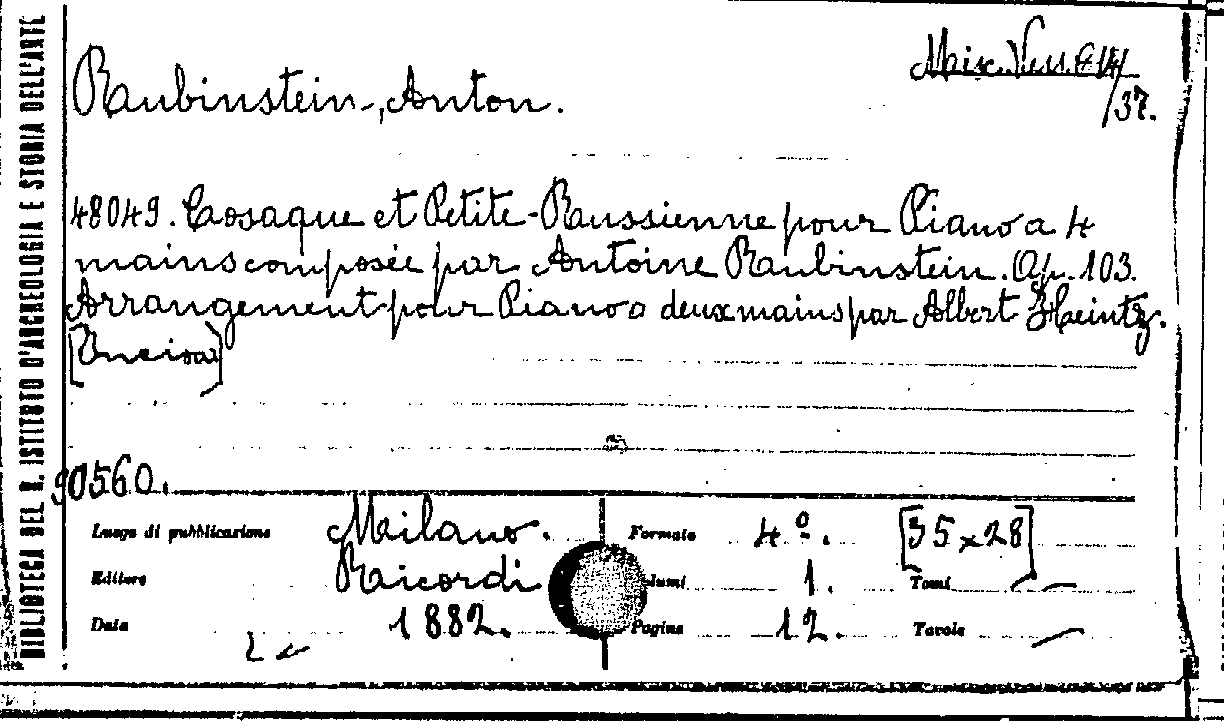 BIBLIOTECA DEL R. ISTITUTO D'ARCHEOLOGIA E STORIA DELL'ARTE
Misc. Vess.
/37.
Rubinstein, Anton.
48049. Cosaque et Petite-Russienne pour Piano a 4
mains composée par Antoine Rubinstein. Op. 103.
Arrangement pour Piano a deux mains par Albert Heintz.
[Incisa]
90560.
Luogo di pubblicazione Milano. Formato 4º. [35x28]
Editore Ricordi lumi 1. Tomi —
Data 1882. Pagine 12. Tavole —